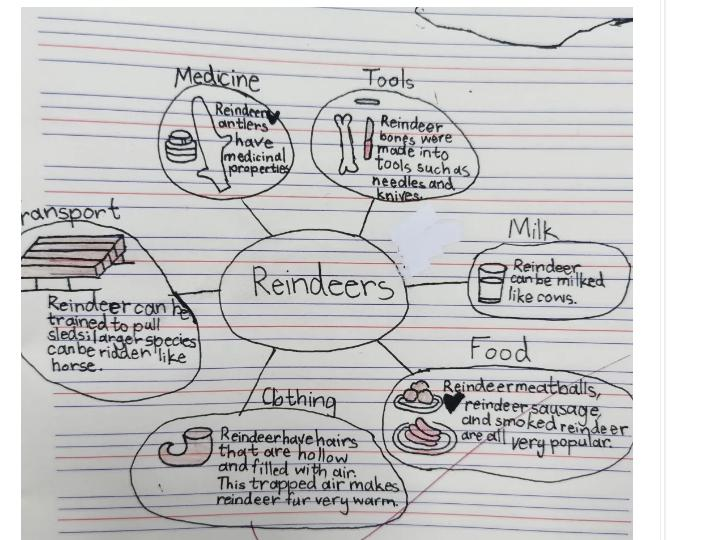 Medicine
Reindeer
antlers
have
medicinal
properties
Tools
Reindeer
bones were
made into
tools such as
needles and
knives.
ransport
Reindeer can be
trained to pull
sleds; larger species
can be ridden like
horse.
Reindeers
Milk
Reindeer
can be milked
like cows.
Food
Reindeer meatballs,
reindeer sausage,
and smoked reindeer
are all very popular.
Clothing
Reindeer have hairs
that are hollow
and filled with air.
This trapped air makes
reindeer fur very warm.